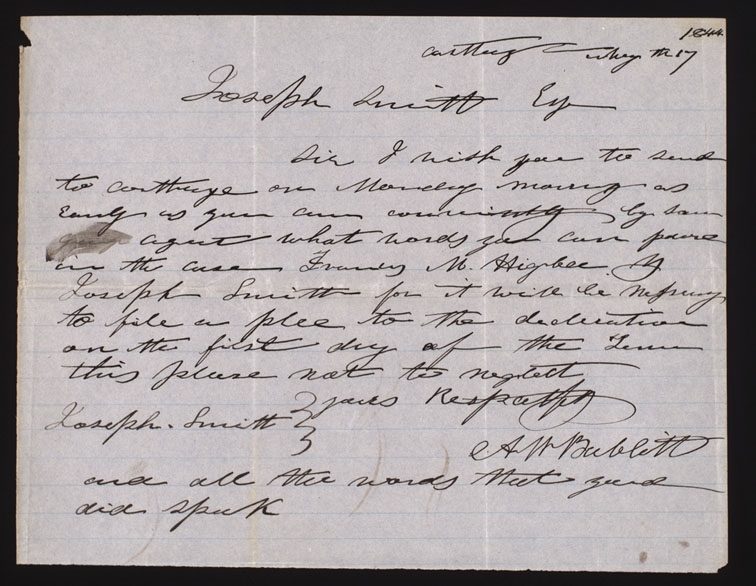 1844
carthage may th 17
Joseph Smith Esq
Sir I wish you to send
to carthage on Monday morng as
Early as you can convinently by som
agent what words you can prove
in the case Francis M. Higbee V
Joseph Smith for it will be nessuary
to file a plee to the declaration
on the first day of the Term
this please not to neglect
yours Respectfly
Joseph Smith
A W Babbitt
and all the words that you
did speak